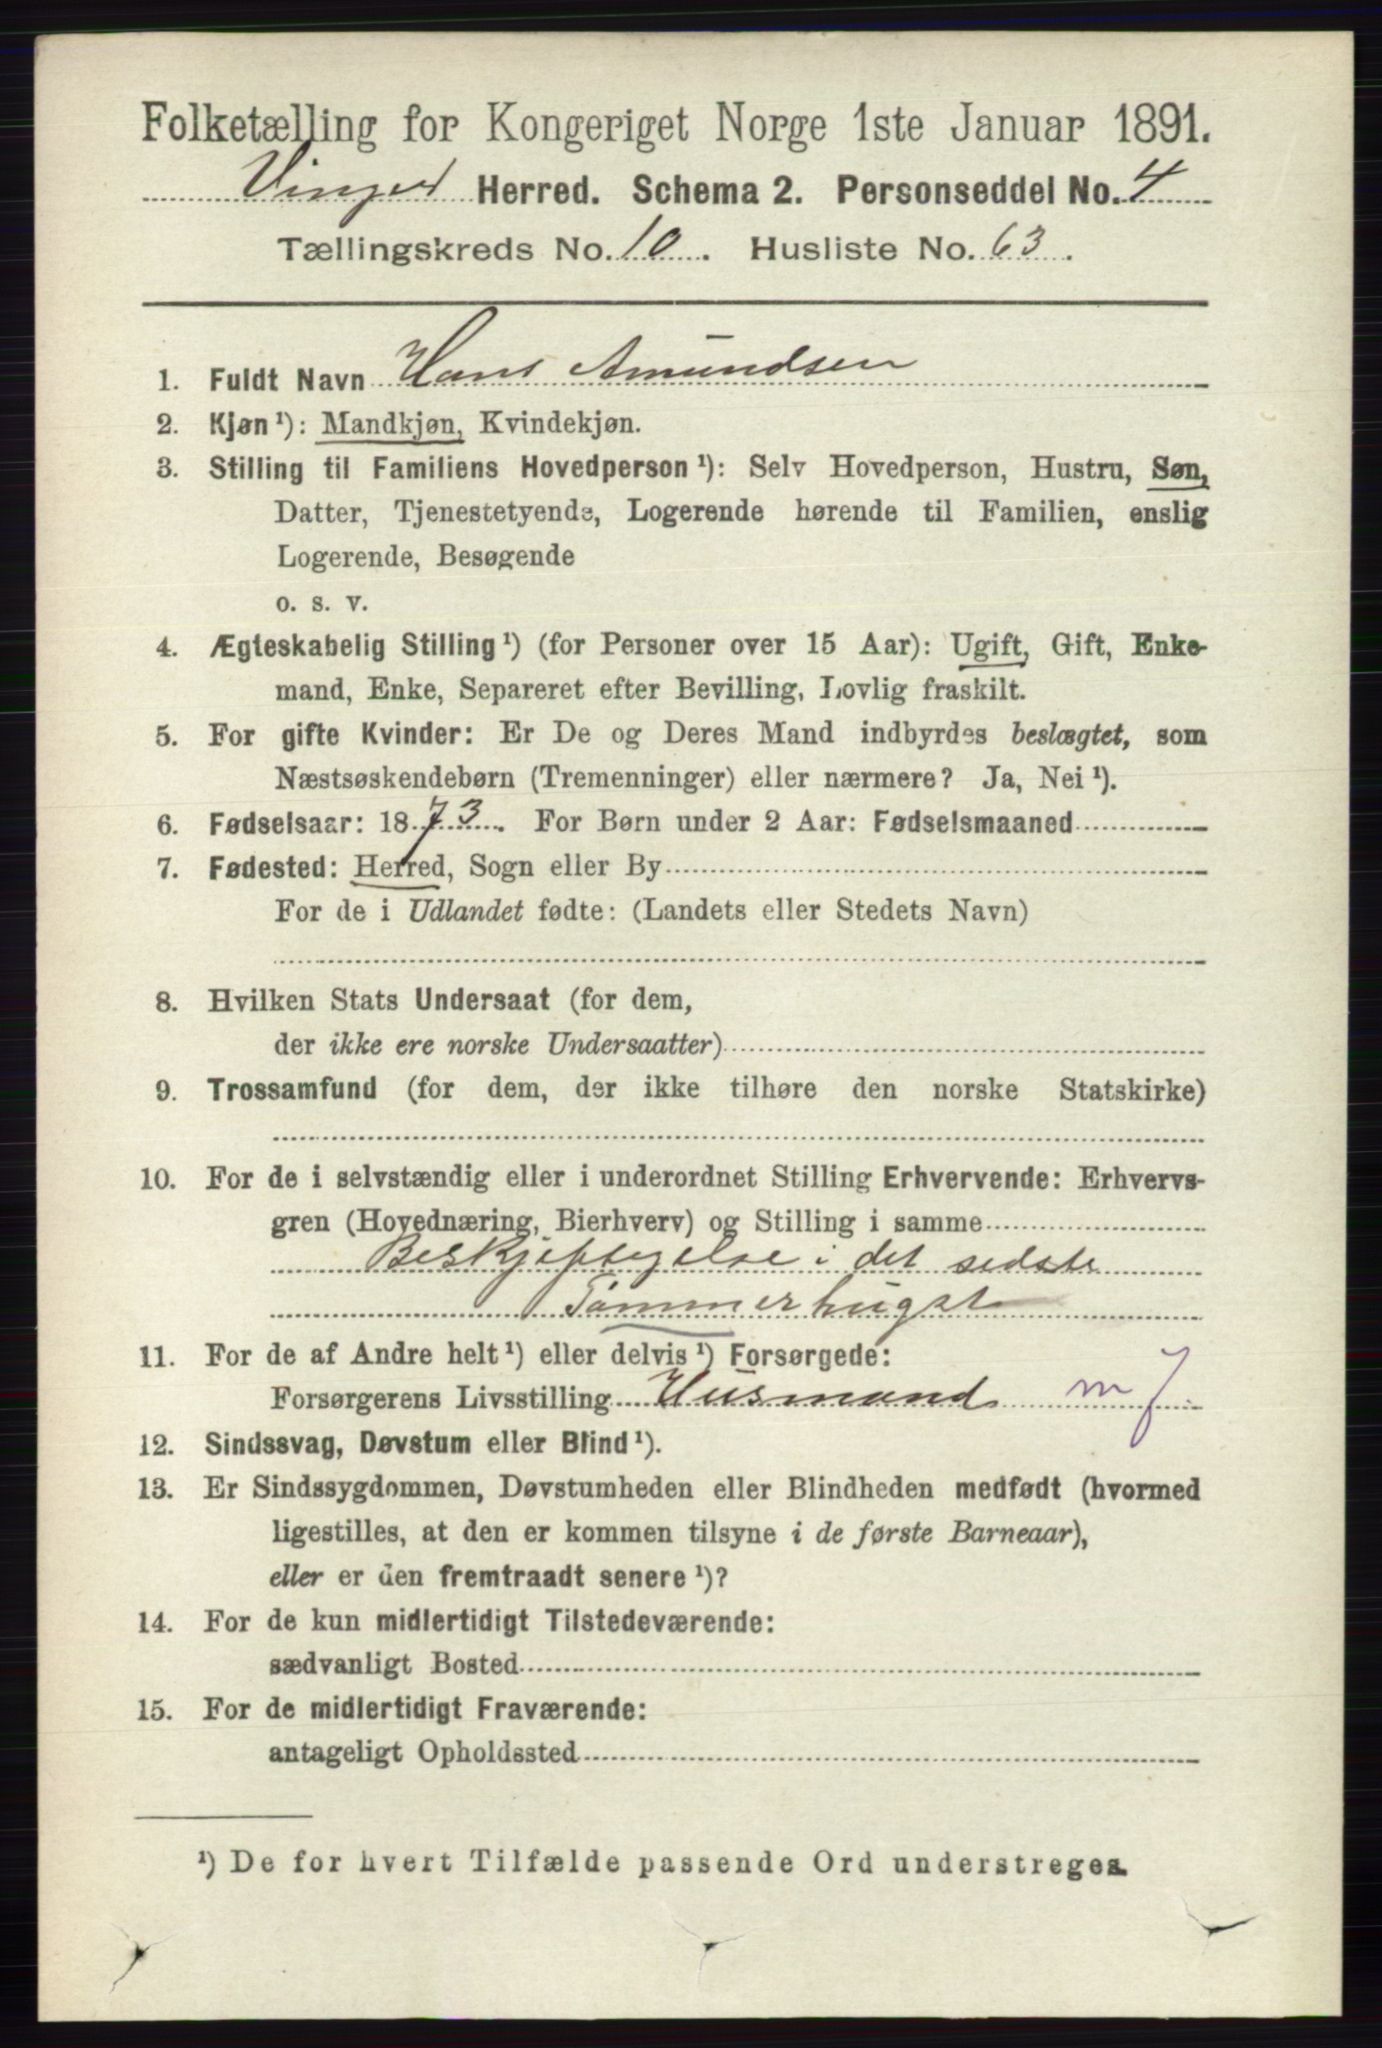 Folketælling for Kongeriget Norge 1ste Januar 1891.
Vinger Herred. Schema 2. Personseddel No. 4
Tællingskreds No. 10. Husliste No. 63.
1. Fuldt Navn Hans Amundsen
2. Kjøn ¹): Mandkjøn, Kvindekjøn.
3. Stilling til Familiens Hovedperson ¹): Selv Hovedperson, Hustru, Søn,
Datter, Tjenestetyende, Logerende hørende til Familien, enslig
Logerende, Besøgende
o. s. v.
4. Ægteskabelig Stilling ¹) (for Personer over 15 Aar): Ugift, Gift, Enke-
mand, Enke, Separeret efter Bevilling, Lovlig fraskilt.
5. For gifte Kvinder: Er De og Deres Mand indbyrdes beslægtet, som
Næstsøskendebørn (Tremenninger) eller nærmere? Ja, Nei ¹).
6. Fødselsaar: 1873. For Børn under 2 Aar: Fødselsmaaned
7. Fødested: Herred, Sogn eller By
For de i Udlandet fødte: (Landets eller Stedets Navn)
8. Hvilken Stats Undersaat (for dem,
der ikke ere norske Undersaatter)
9. Trossamfund (for dem, der ikke tilhøre den norske Statskirke)
10. For de i selvstændig eller i underordnet Stilling Erhvervende: Erhvervs-
gren (Hovednæring, Bierhverv) og Stilling i samme
Beskjeftigelse i det sidste
Tømmerhugst
11. For de af Andre helt ¹) eller delvis ¹) Forsørgede:
Forsørgerens Livsstilling Husmand m j.
12. Sindssvag, Døvstum eller Blind ¹).
13. Er Sindssygdommen, Døvstumheden eller Blindheden medfødt (hvormed
ligestilles, at den er kommen tilsyne i de første Barneaar),
eller er den fremtraadt senere ¹)?
14. For de kun midlertidigt Tilstedeværende:
sædvanligt Bosted
15. For de midlertidigt Fraværende:
antageligt Opholdssted
¹) De for hvert Tilfælde passende Ord understreges.